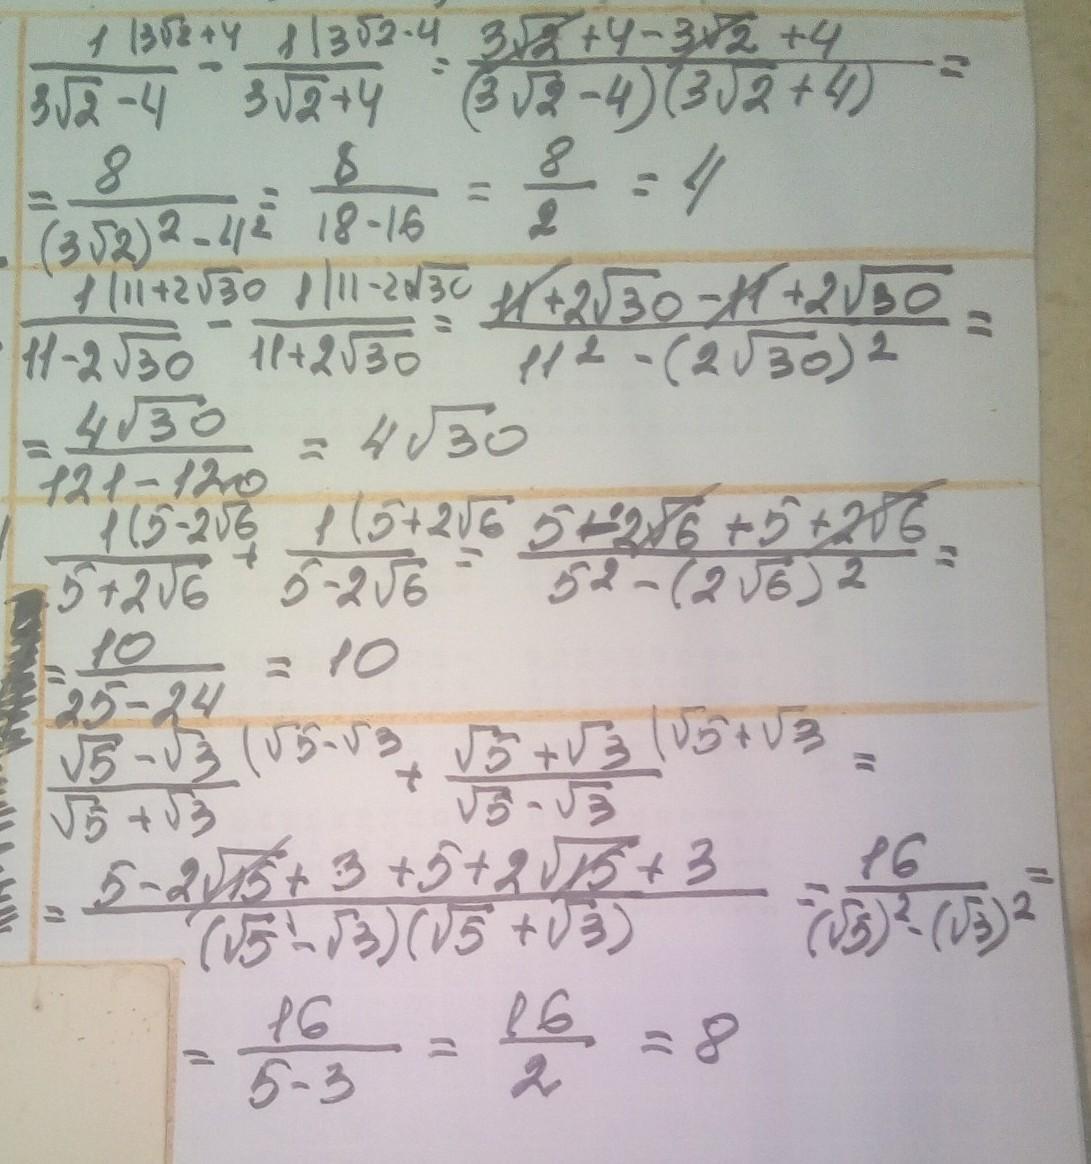 1 |3√2+4 / 3√2-4 - 1 |3√2-4 / 3√2+4 = 3√2+4-3√2+4 / (3√2-4)(3√2+4) =
= 8 / (3√2)²-4² = 8 / 18-16 = 8/2 = 4
1 |11+2√30 / 11-2√30 - 1 |11-2√30 / 11+2√30 = 11+2√30-11+2√30 / 11²-(2√30)² =
= 4√30 / 121-120 = 4√30
1(5-2√6 / 5+2√6 + 1(5+2√6 / 5-2√6 = 5-2√6+5+2√6 / 5²-(2√6)² =
= 10 / 25-24 = 10
√5-√3 (√5-√3 / √5+√3 + √5+√3 (√5+√3 / √5-√3 =
= 5-2√15+3+5+2√15+3 / (√5-√3)(√5+√3) = 16 / (√5)²-(√3)² =
= 16 / 5-3 = 16/2 = 8